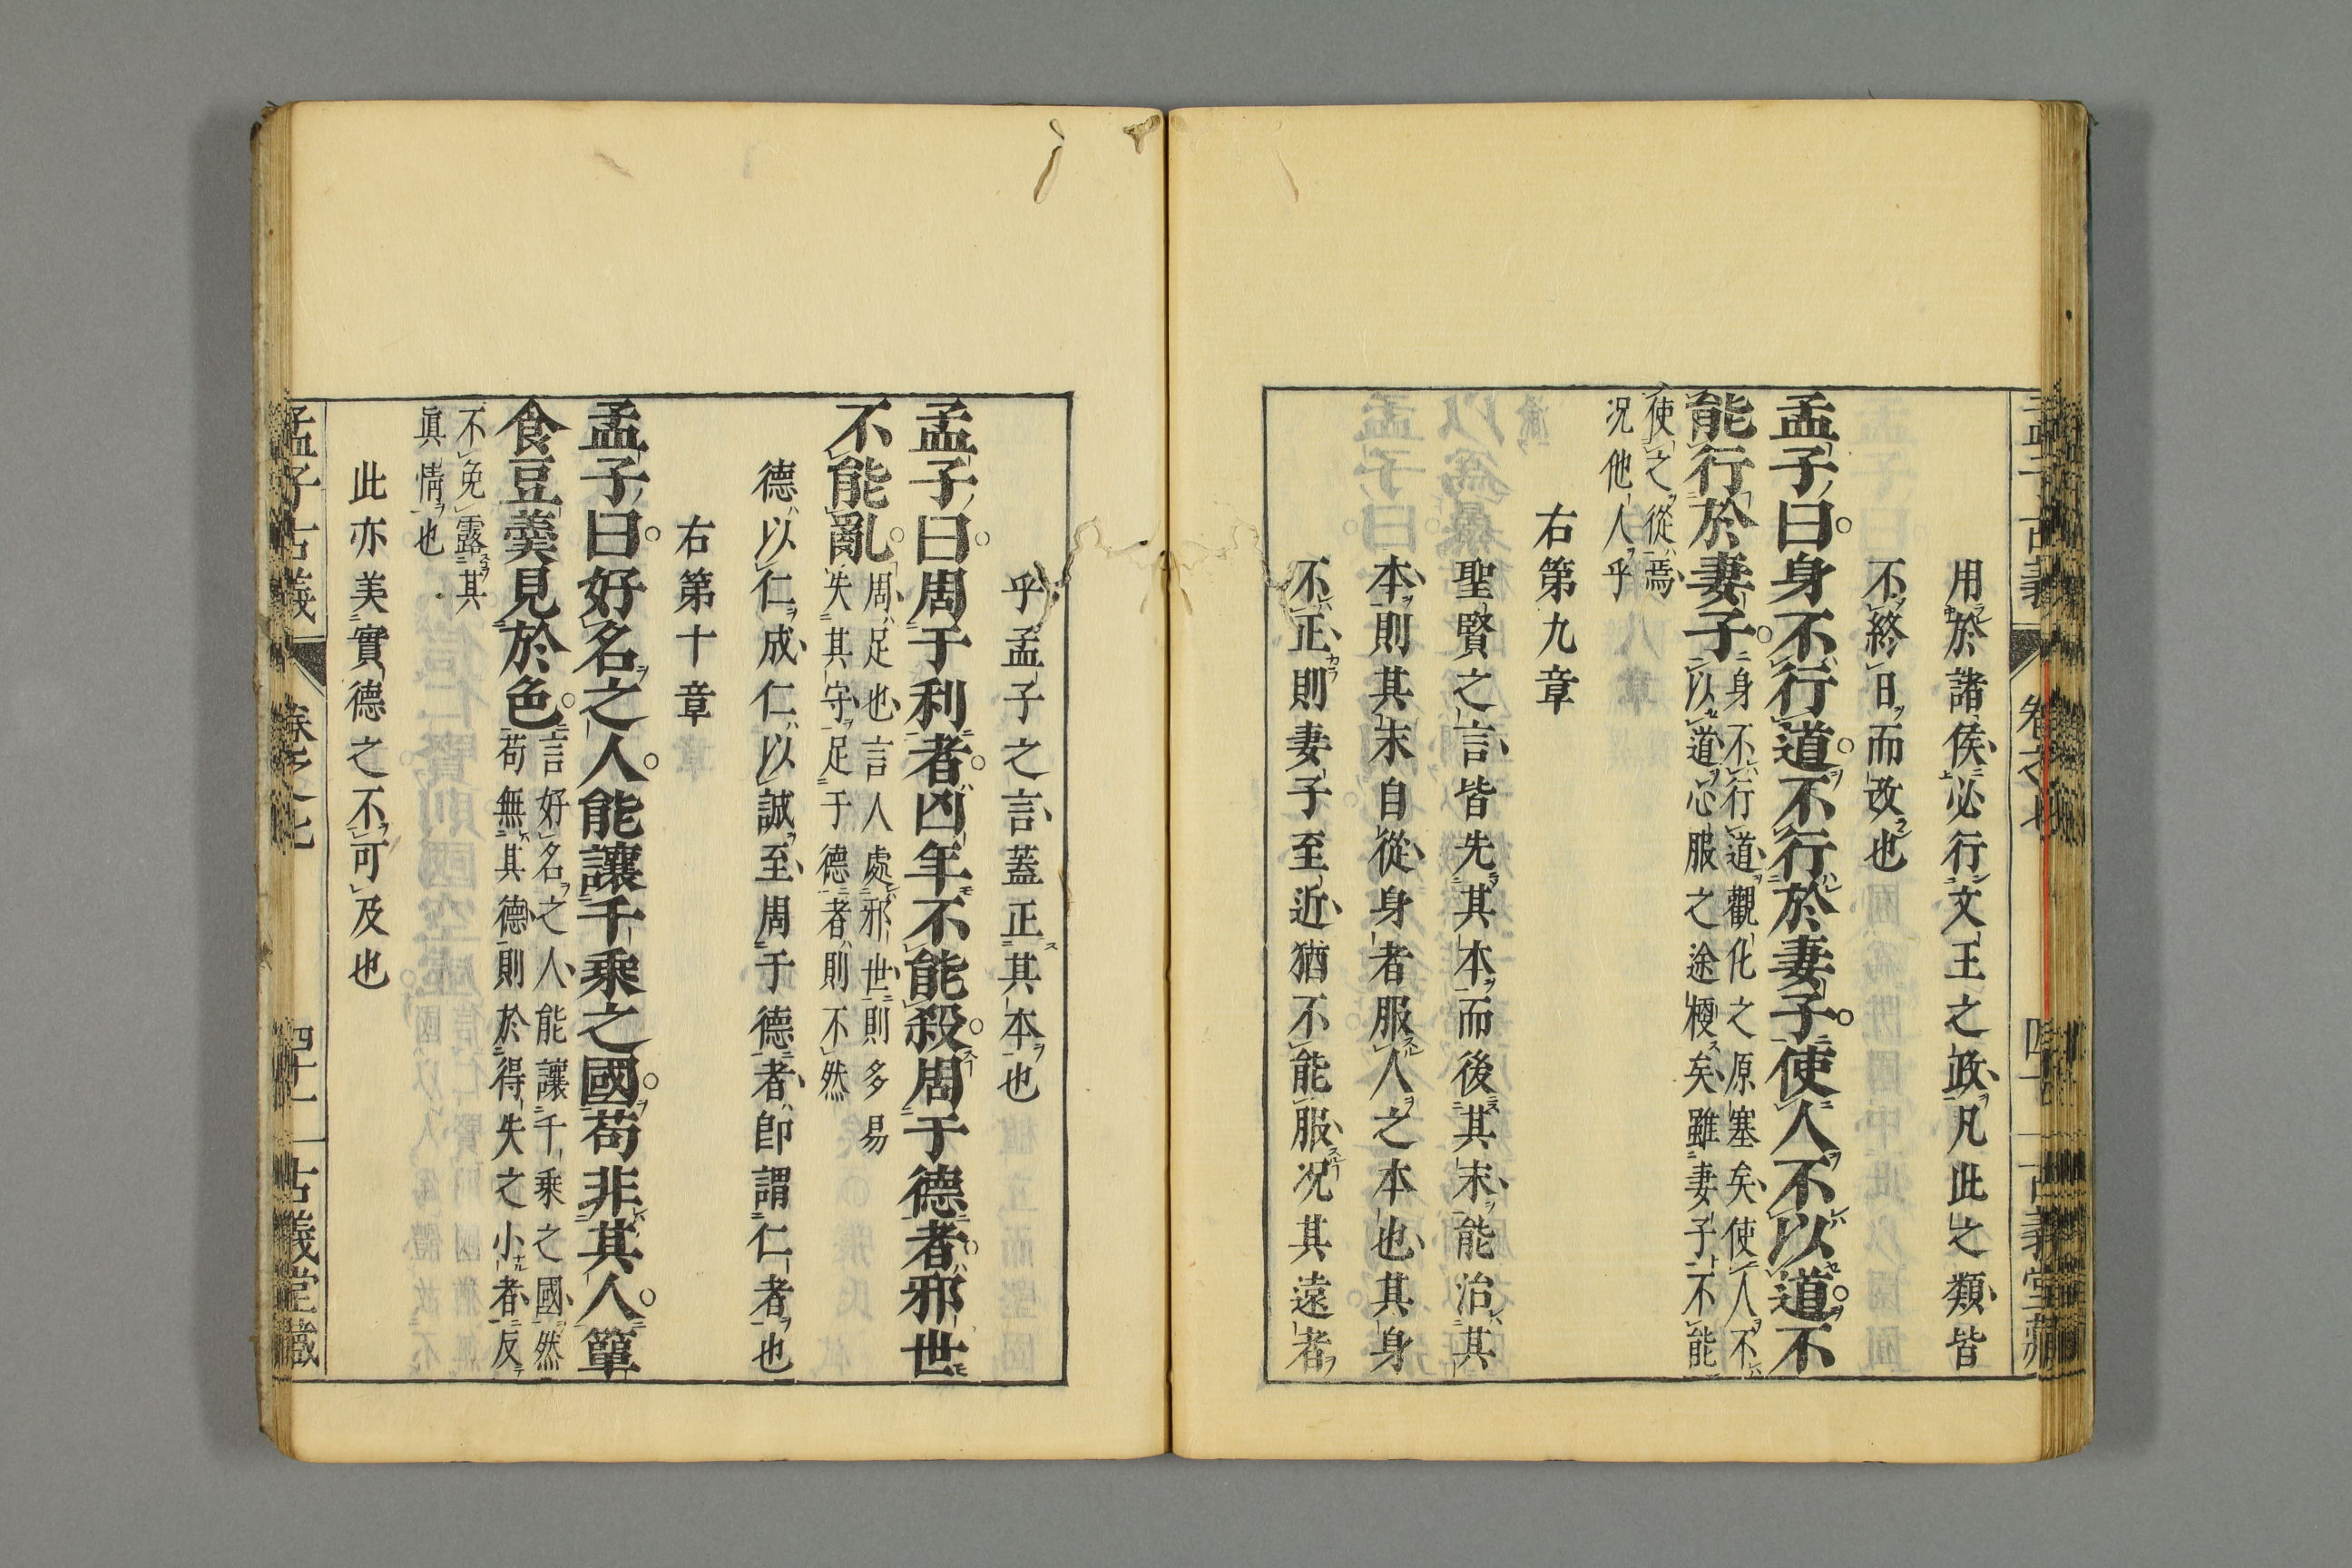 用於諸侯必行文王之政凡此之類皆
不終日而改也
孟子曰身不行道不行於妻子使人不以道不
能行於妻子
身不行道觀化之原塞矣使人不
以道心服之途梗矣雖妻子不能
使之從焉
况他人乎
右第九章
聖賢之言皆先其本而後其末能治其
本則其末自從身者服人之本也其身
不正則妻子至近猶不能服况其遠者
乎孟子之言蓋正其本也
孟子曰周于利者凶年不能殺周于德者邪世
不能亂
周足也言人處邪世則多易
失其守足于德者則不然
德以仁成仁以誠至周于德者即謂仁者也
右第十章
孟子曰好名之人能讓千乗之國苟非其人簞
食豆羹見於色
言好名之人能讓千乗之國然
苟無其德則於得失之小者反
不免露其
眞情也
此亦美實德之不可及也
孟子古義
卷之七
四十一
古義堂藏